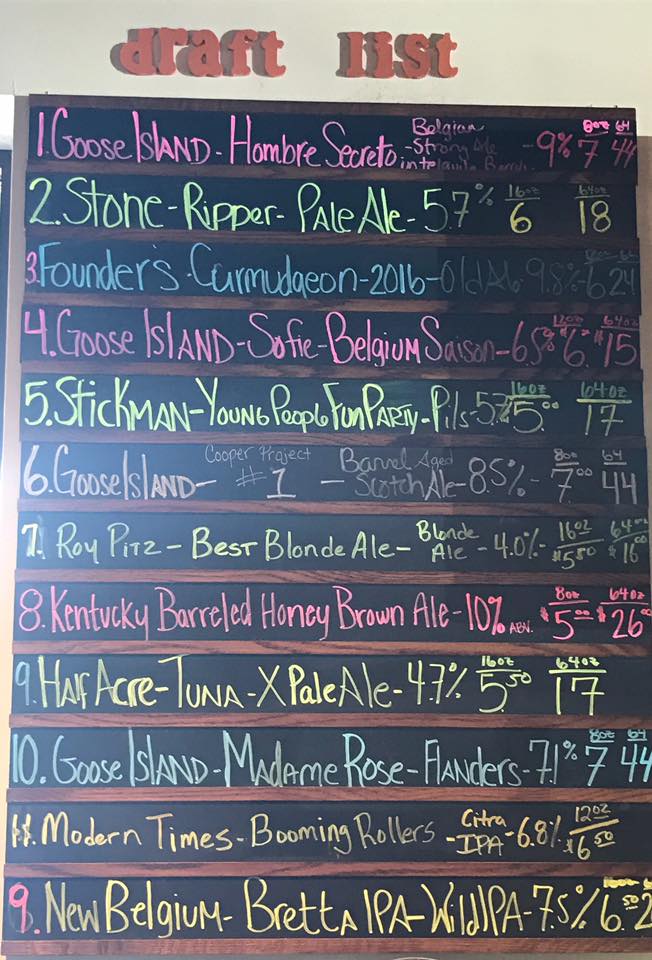 draft list
1. Goose Island - Hombre Secreto Belgian - Strong Ale in tequila Barrels - 9% 8oz 7 64 44
2. Stone - Ripper - Pale Ale - 5.7% 16oz 6 64oz 18
3. Founder's - Curmudgeon - 2016 - Old Ale 9.8% - 6 24
4. Goose Island - Sofie - Belgium Saison - 6.5% 12oz $6. 64oz $15
5. Stickman - Young People Fun Party - Pils - 5.2% 16oz 5.00 64oz 17
6. Goose Island - Cooper Project #1 - Barrel Aged Scotch Ale - 8.5% - 8oz 7.00 64 44
7. Roy Pitz - Best Blonde Ale - Blonde Ale - 4.0% - 16oz $5.50 64oz $16.00
8. Kentucky Barreled Honey Brown Ale - 10% ABV. 8oz $5.00 64oz $26.00
9. Half Acre - Tuna - X Pale Ale - 4.7% 16oz 5.50 64oz 17
10. Goose Island - Madame Rose - Flanders - 7.1% 8oz 7 64 44
11. Modern Times - Booming Rollers - Citra IPA - 6.8% 12oz $6.50
9. New Belgium - Bretta IPA - Wild IPA - 7.5% 6.50 2